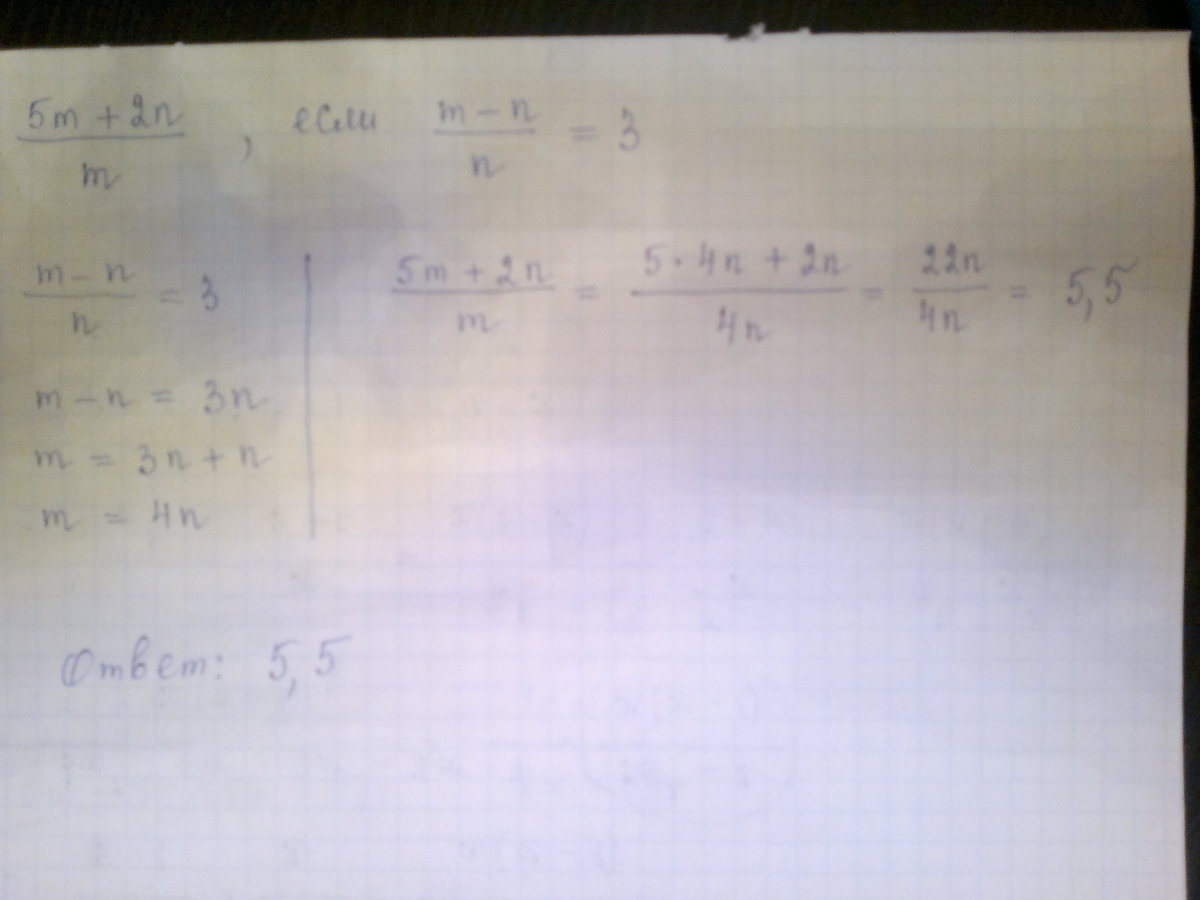 (5m + 2n)/m, если (m - n)/n = 3
(m - n)/n = 3
m - n = 3n
m = 3n + n
m = 4n
(5m + 2n)/m = (5 · 4n + 2n)/4n = 22n/4n = 5,5
Ответ: 5,5